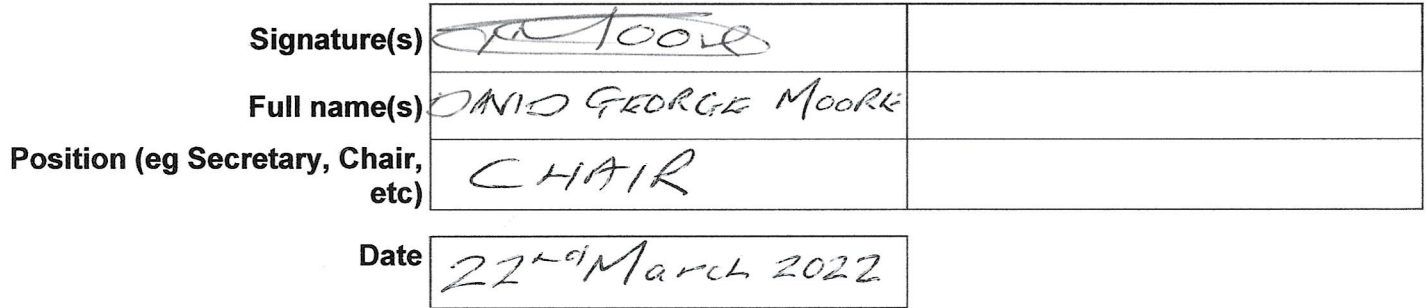 Signature(s) Moore
Full name(s) DAVID GEORGE MOORE
Position (eg Secretary, Chair,
etc) CHAIR
Date 22nd March 2022